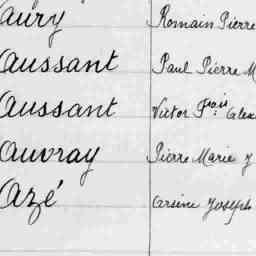 Aury Romain Pierre
Aussant Paul Pierre M
Aussant Victor Fçois Alex
Auvray Pierre Marie J
Azé Arsène Joseph